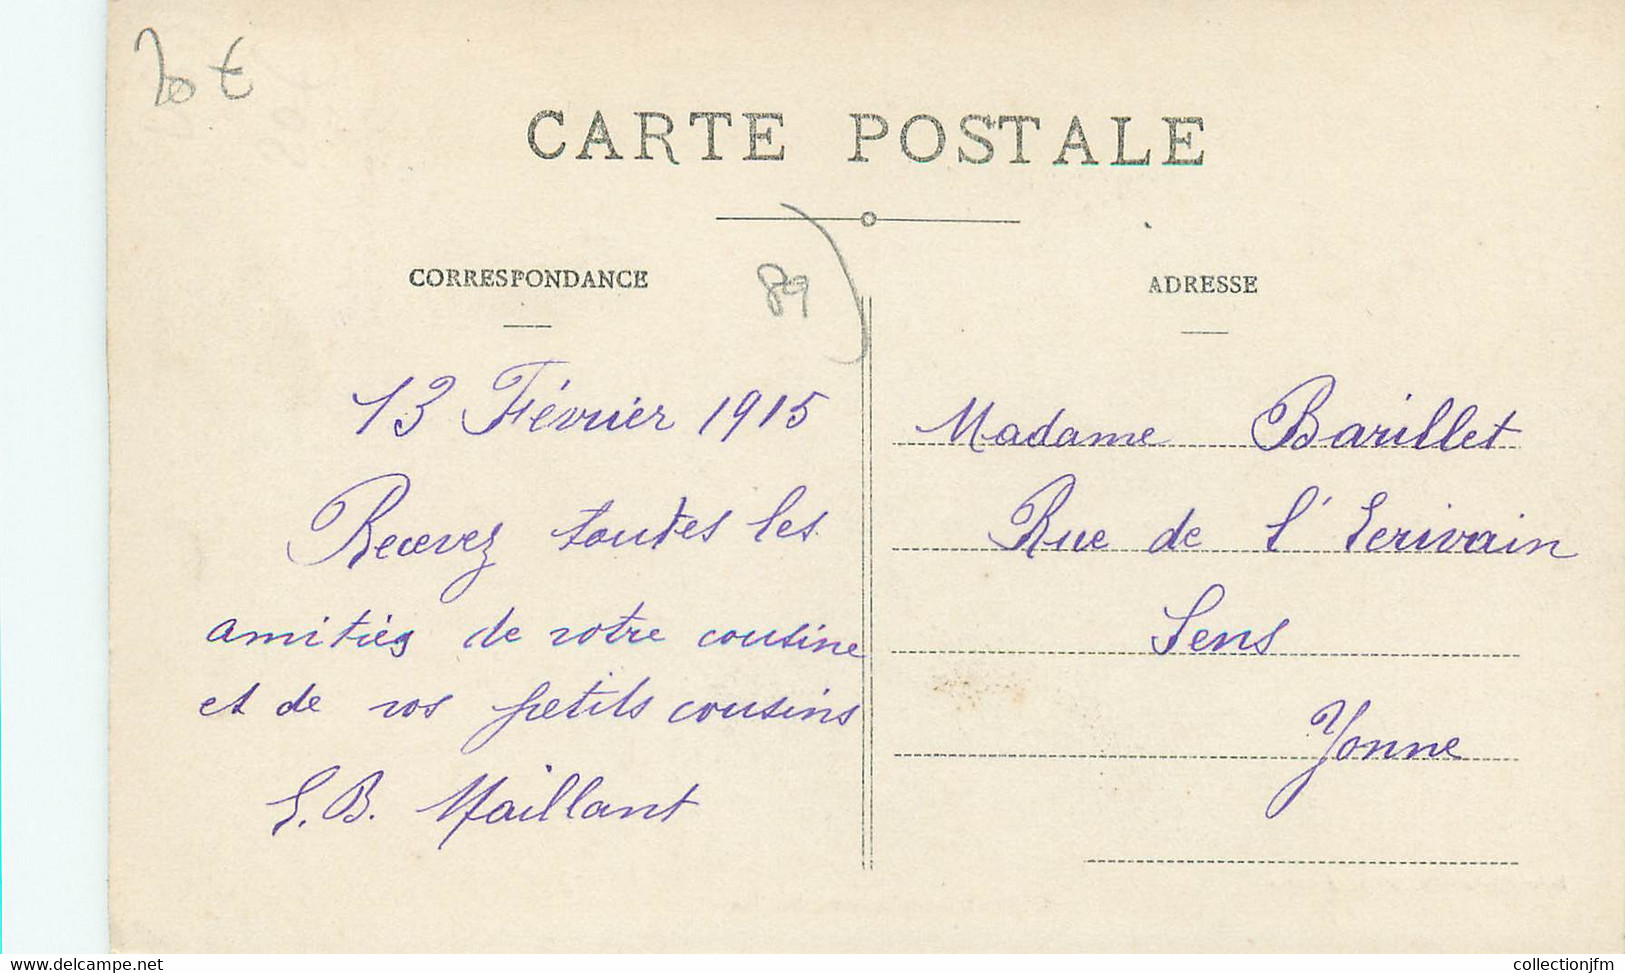 20 €
CARTE POSTALE
CORRESPONDANCE
89
13 Février 1915
Recevez toutes les
amitiés de votre cousine
et de vos petits cousins
E. B. Maillant
ADRESSE
Madame Barillet
Rue de l'Ecrivain
Sens
Yonne
www.delcampe.net
collectionjfm